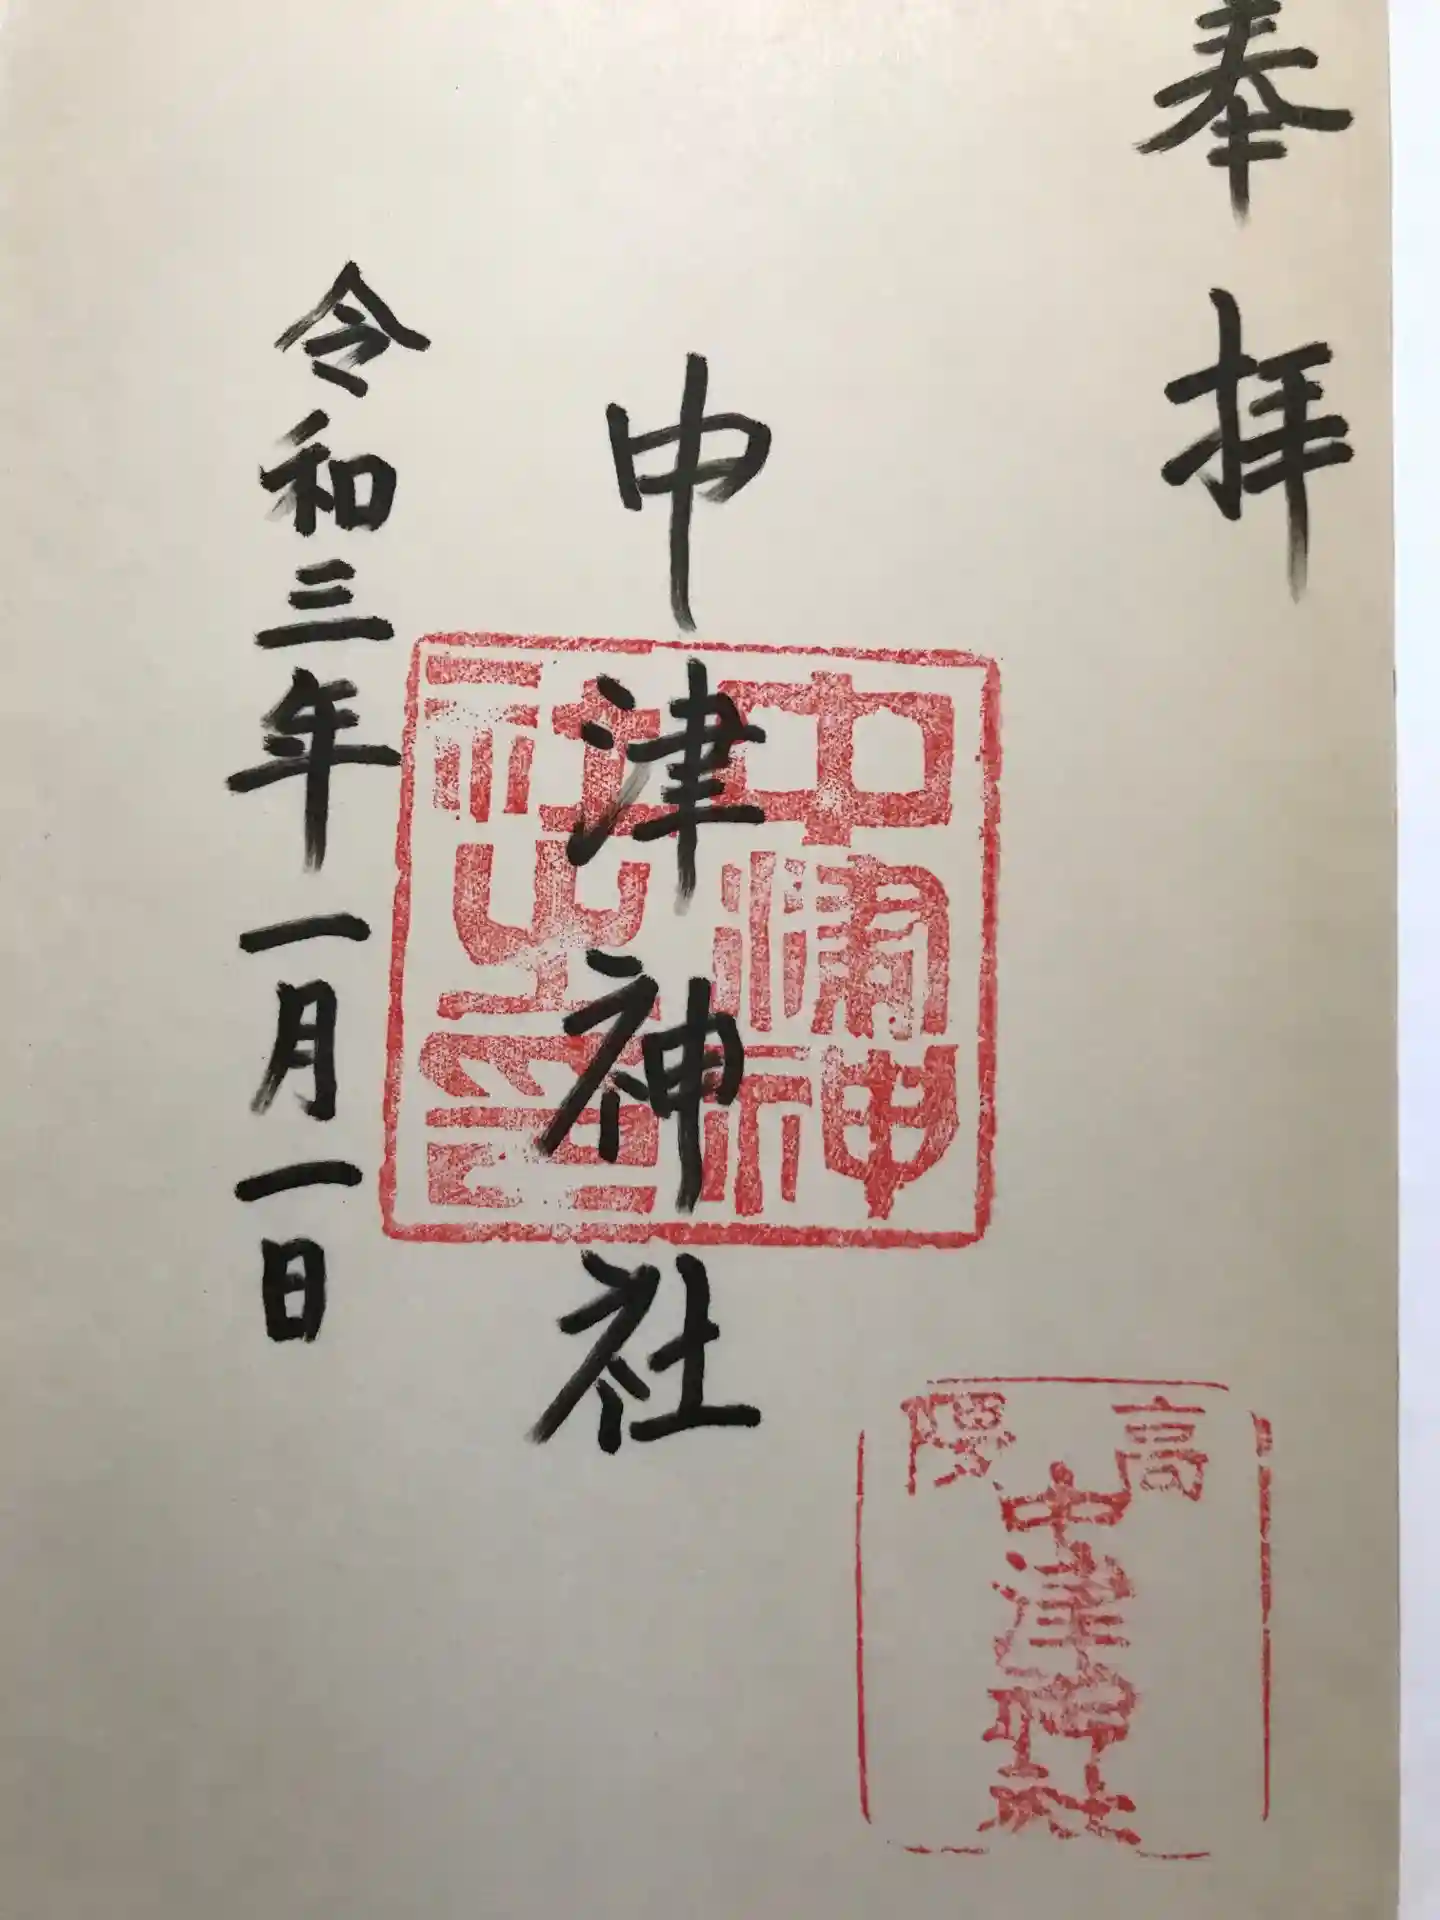 奉拝
中津神社
令和三年一月一日
中津神社之印
高隈
中津神社